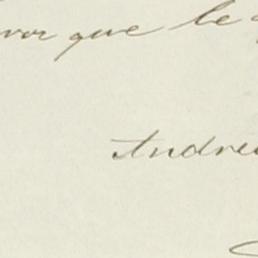 vor que le
Andre